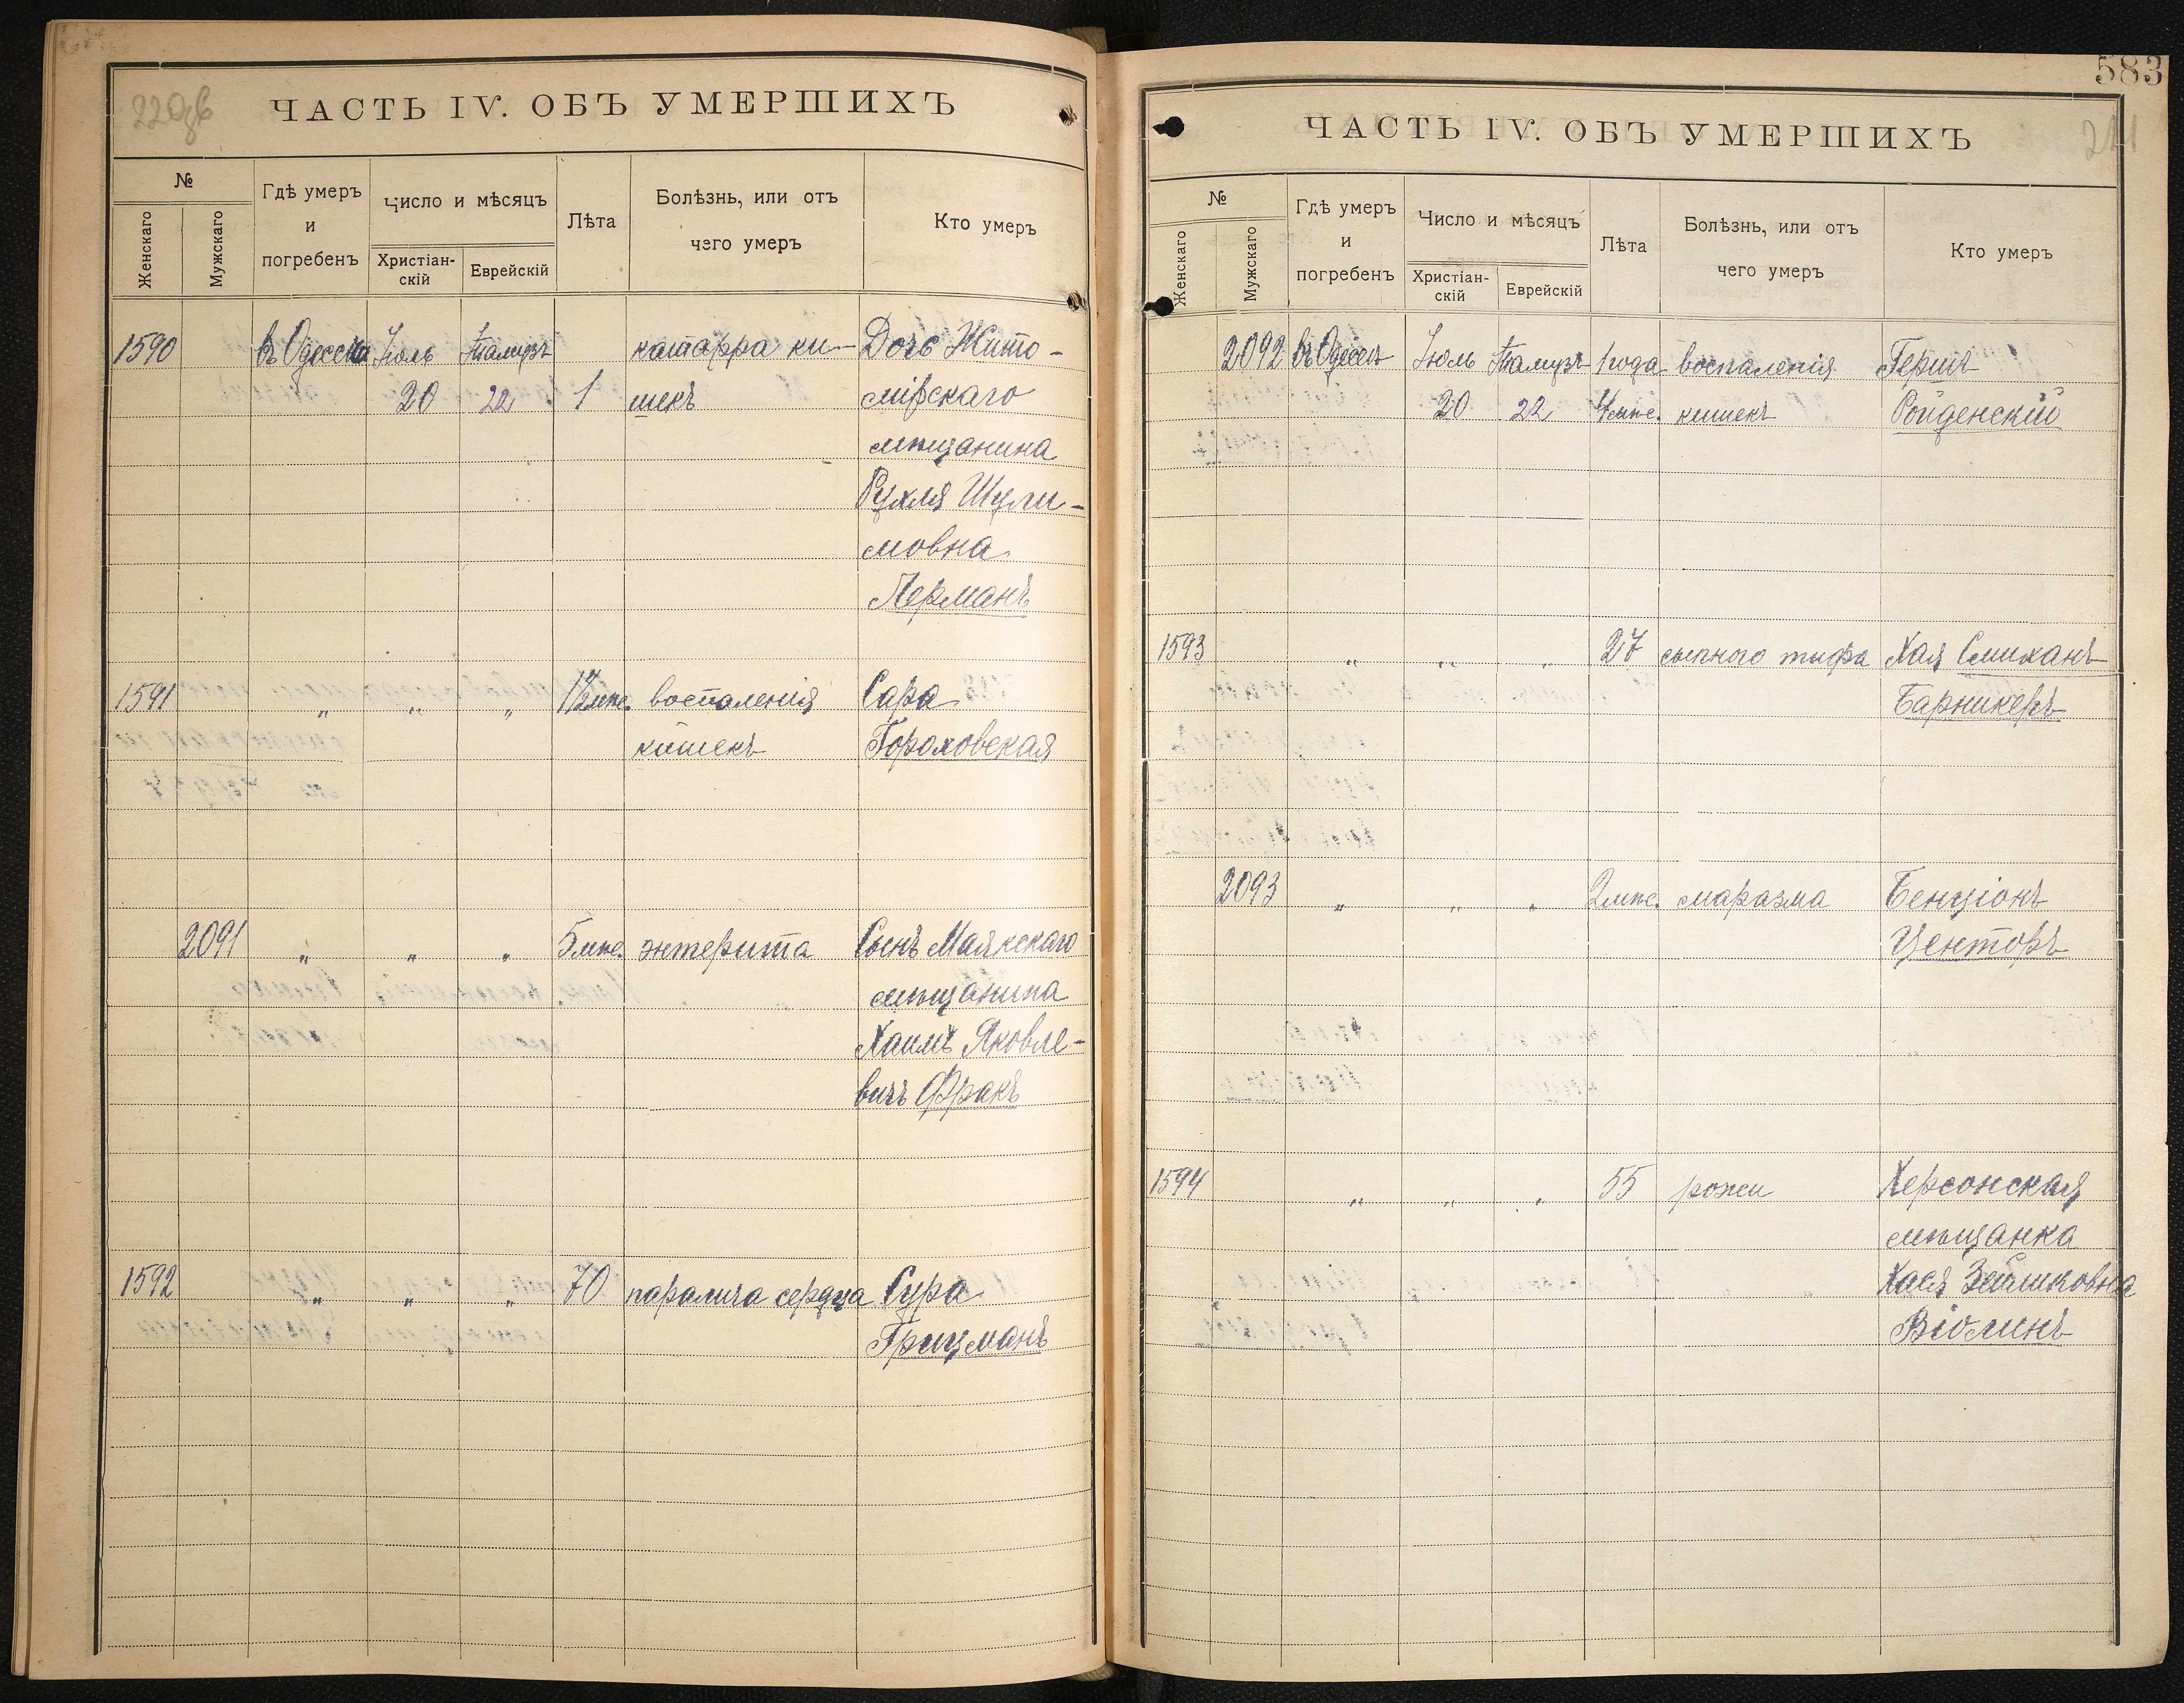 220об
ЧАСТЬ IV. ОБЪ УМЕРШИХЪ
№
Женскаго
Мужскаго
Гдѣ умеръ
и
погребенъ
Число и мѣсяцъ
Христіан-
скій
Еврейскій
Лѣта
Болѣзнь, или отъ
чего умеръ
Кто умеръ
1590 въ Одессѣ Іюль Тамузъ катарра ки- Дочь Жито-
20 22 1 шекъ мірскаго
мѣщанина
Рухля Шули-
мовна
Лерманъ
1591 " " " 1½ мѣс. воспаленія Сара
кишекъ Гороховская
2091 " " " 5 мѣс. энтерита Сынъ Маякскаго
мѣщанина
Хаимъ Яковле-
вичъ Фракъ
1592 " " " 70 паралича сердца Сура
Грицманъ
583
221
ЧАСТЬ IV. ОБЪ УМЕРШИХЪ
№
Женскаго
Мужскаго
Гдѣ умеръ
и
погребенъ
Число и мѣсяцъ
Христіан-
скій
Еврейскій
Лѣта
Болѣзнь, или отъ
чего умеръ
Кто умеръ
2092 въ Одессѣ Іюль Тамузъ 1 года воспаленія Гершъ
20 22 4 мѣс. кишекъ Ройденскій
1593 " " " 27 сыпного тифа Хая
Барникеръ
2093 " " " 2 мѣс. маразма Бенціонъ
Центоръ
1594 " " " 55 рожи Херсонская
мѣщанка
Хася
Віолинъ